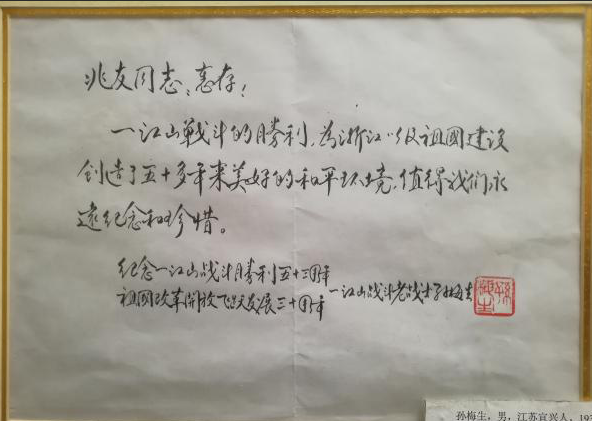 兆友同志：惠存！
一江山戰斗的勝利，為浙江以及祖國建设
创造了五十多年来美好的和平环境，值得我们永
遠纪念和珍惜。
纪念一江山战斗勝利五十三周年
祖國改革開放飞跃发展三十周年
一江山战斗老战士孙梅生
孙梅生，男，江苏宜兴人，193